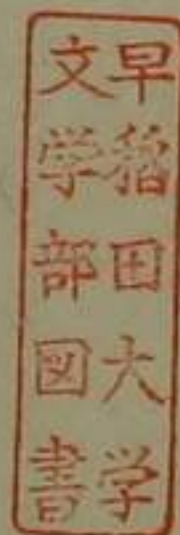 早稻田大学
文学部図書